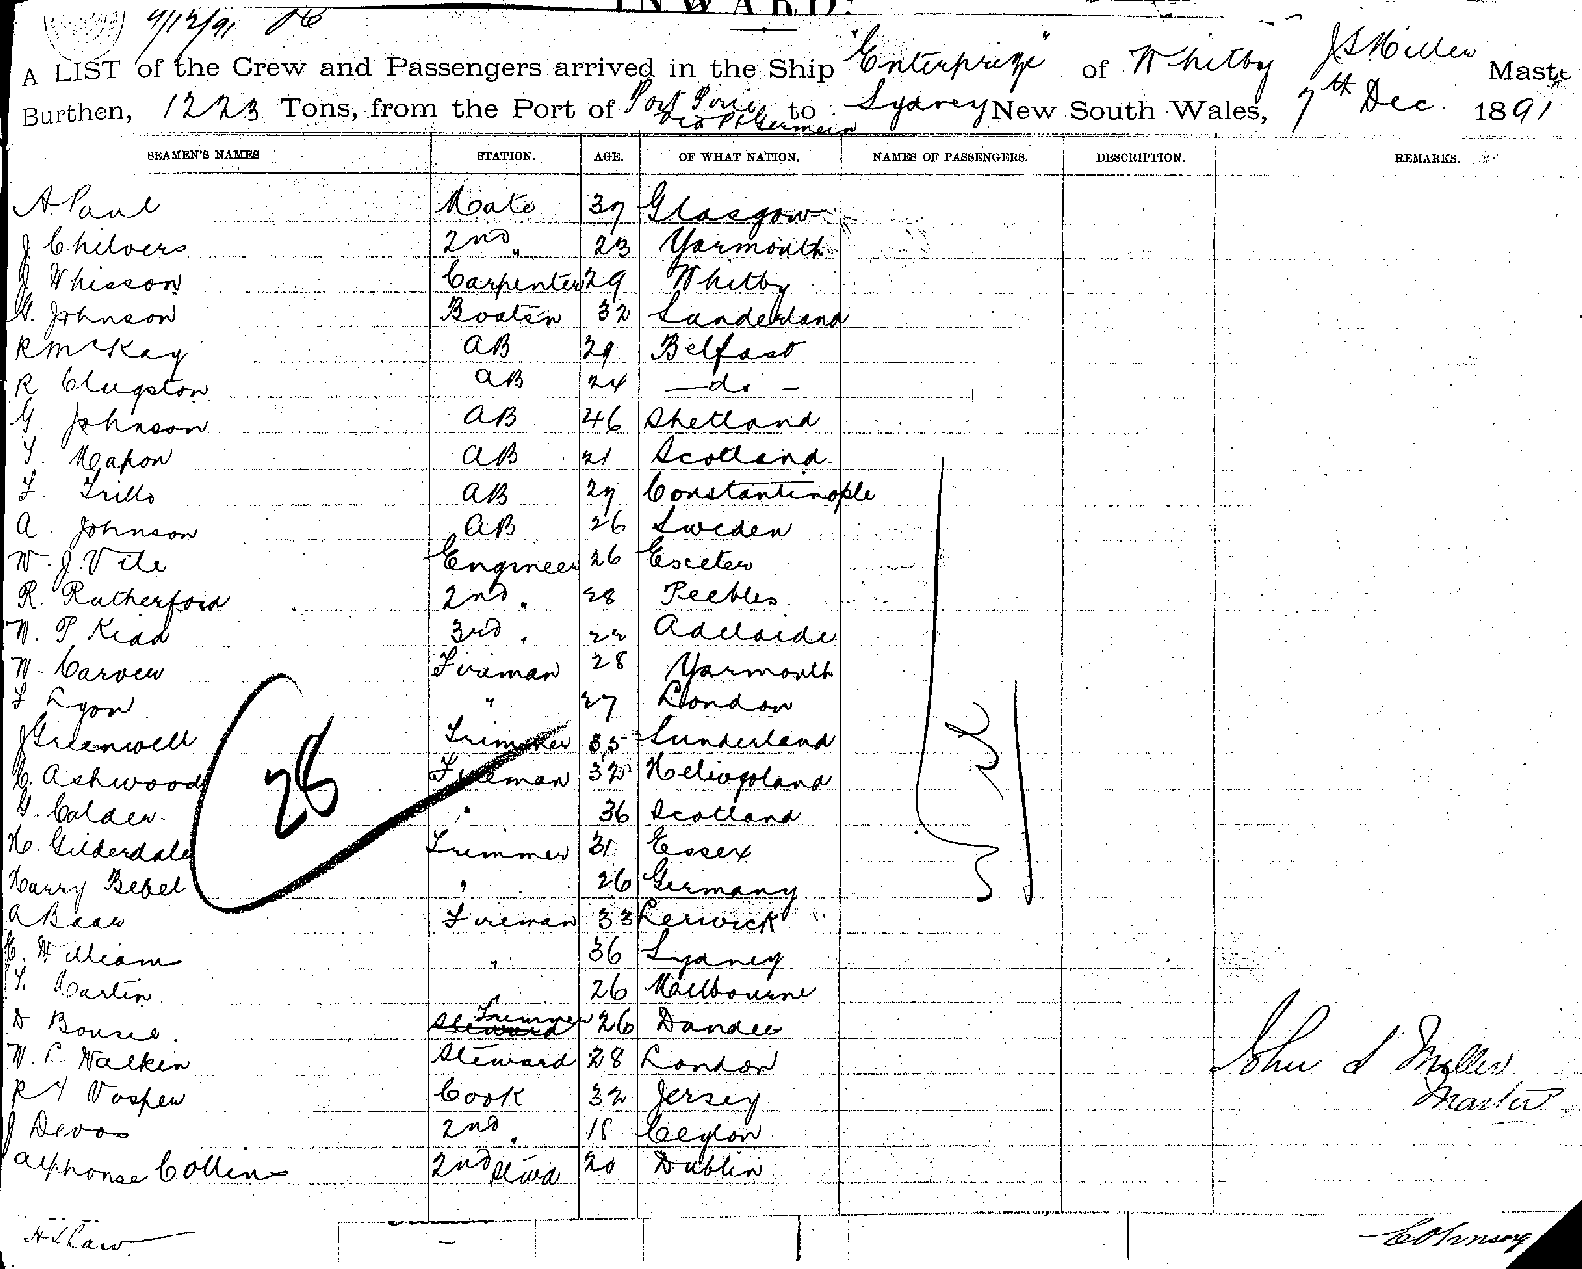 INWARD.
7/12/91
A LIST of the Crew and Passengers arrived in the Ship "Enterprize" of Whitby J S Miller Maste
Burthen, 1223 Tons, from the Port of Port Pirie via Pt Germein to Sydney New South Wales, 7th Dec. 1891
SEAMEN'S NAMES STATION. AGE. OF WHAT NATION. NAMES OF PASSENGERS. DESCRIPTION. REMARKS.
A Paul Mate 37 Glasgow
J Chilvers 2nd " 23 Yarmouth
J Whisson Carpenter 29 Whitby
G. Johnson Boatsn 32 Sunderland
R McKay AB 29 Belfast
R Clugston AB 24 — do —
G Johnson AB 46 Shetland
T. Mapon AB 21 Scotland
F. Trillo AB 27 Constantinople
A. Johnson AB 26 Sweden
W. J. Vile Engineer 26 Exeter
R. Rutherford 2nd " 28 Peebles
W. P. Kidd 3rd " 22 Adelaide
W. Carver Fireman 28 Yarmouth
F Lyon " 27 London
J Greenwell Trimmer 35 Sunderland
C. Ashwood Fireman 32 Heligoland
G. Calder " 36 Scotland
28
H. Gilderdale Trimmer 31 Essex
Harry Bebel " 26 Germany
A Baar Fireman 33 Lerwick
C. William " 36 Sydney
T. Martin 26 Melbourne
D Bousie. Steward Trimmer 26 Dundee
W. C Walkin Steward 28 London
John S Miller
R Y Vosper Cook 32 Jersey
Master
J Devos 2nd " 18 Ceylon
Alphonse Collins 2nd Stwd 20 Dublin
H Shaw